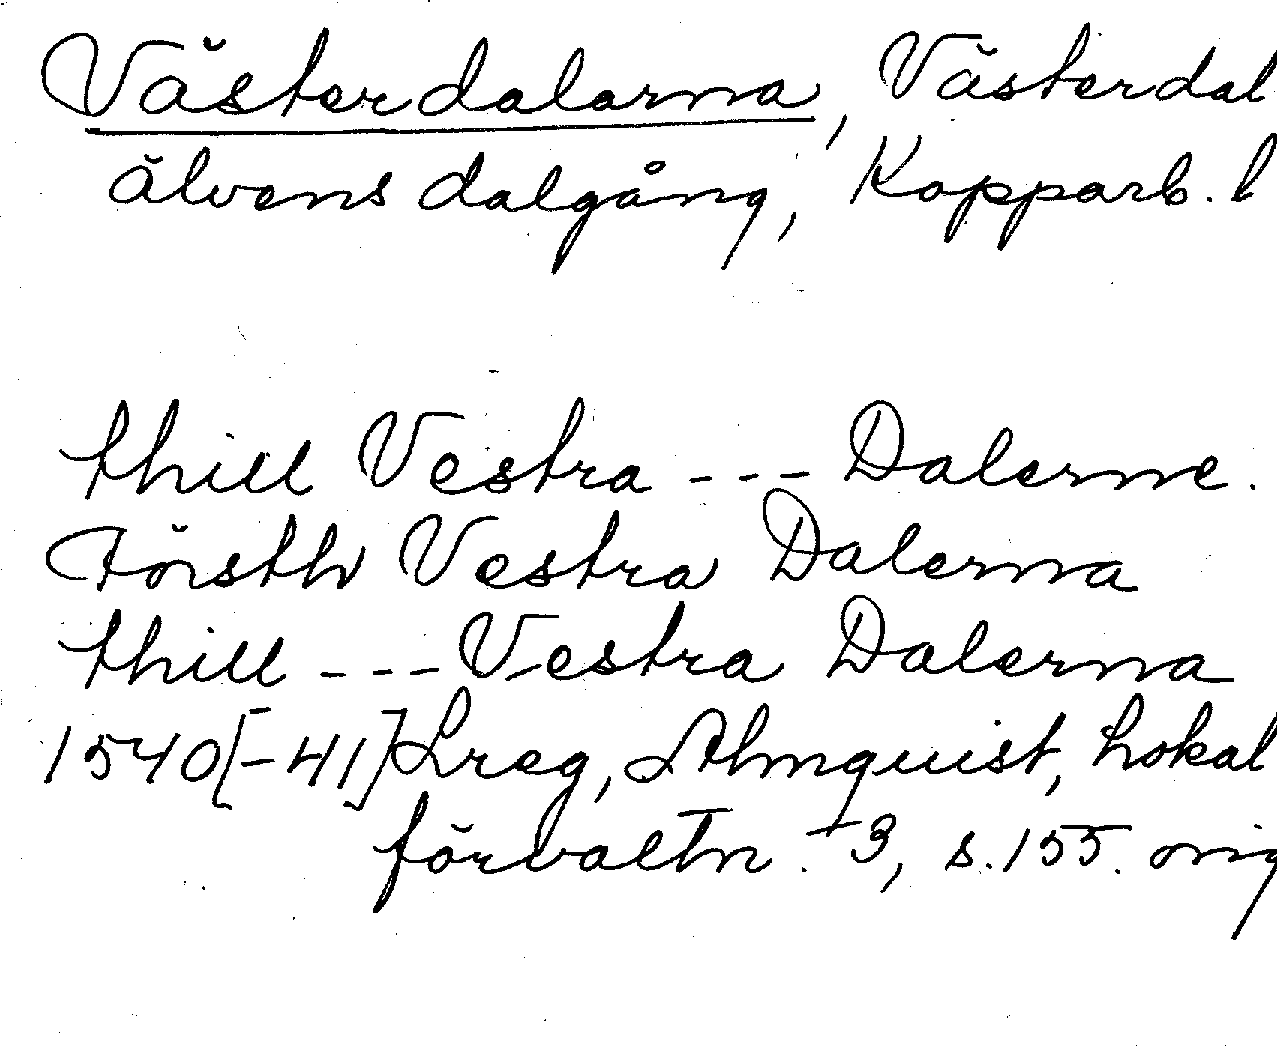 Västerdalarna, Västerdal
älvens dalgång, Kopparb. l
thill Vestra --- Dalerne.
Försth Vestra Dalerna
thill --- Vestra Dalerna
1540[-41] Lreg, Almquist, Lokal
förvaltn. 3, s. 155. orig